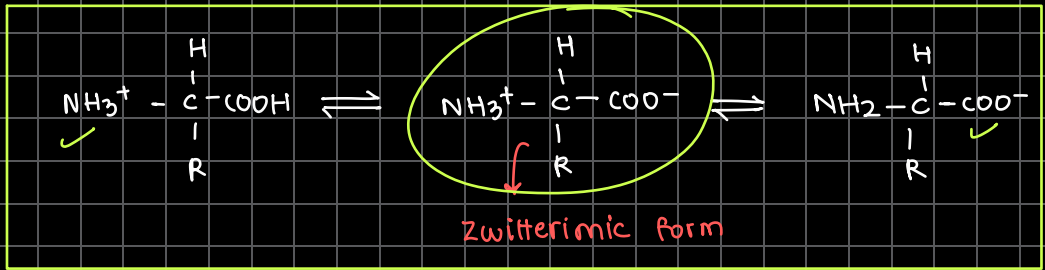 H H H
NH3⁺ – C – COOH ⇌ NH3⁺ – C – COO⁻ ⇌ NH2 – C – COO⁻
R R R
zwitterimic form